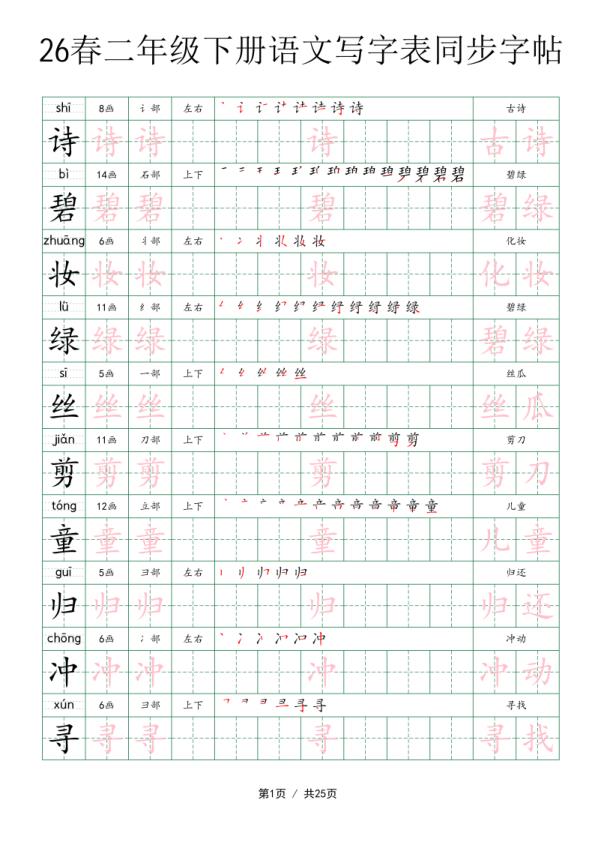 26春二年级下册语文写字表同步字帖
shī 8画 讠部 左右 古诗
诗 诗 诗 诗 古 诗
bì 14画 石部 上下 碧绿
碧 碧 碧 碧 碧 绿
zhuāng 6画 丬部 左右 化妆
妆 妆 妆 妆 化 妆
lǜ 11画 纟部 左右 碧绿
绿 绿 绿 绿 碧 绿
sī 5画 一部 上下 丝瓜
丝 丝 丝 丝 丝 瓜
jiǎn 11画 刀部 上下 剪刀
剪 剪 剪 剪 剪 刀
tóng 12画 立部 上下 儿童
童 童 童 童 儿 童
guī 5画 彐部 左右 归还
归 归 归 归 归 还
chōng 6画 冫部 左右 冲动
冲 冲 冲 冲 冲 动
xún 6画 彐部 上下 寻找
寻 寻 寻 寻 寻 找
第1页 / 共25页